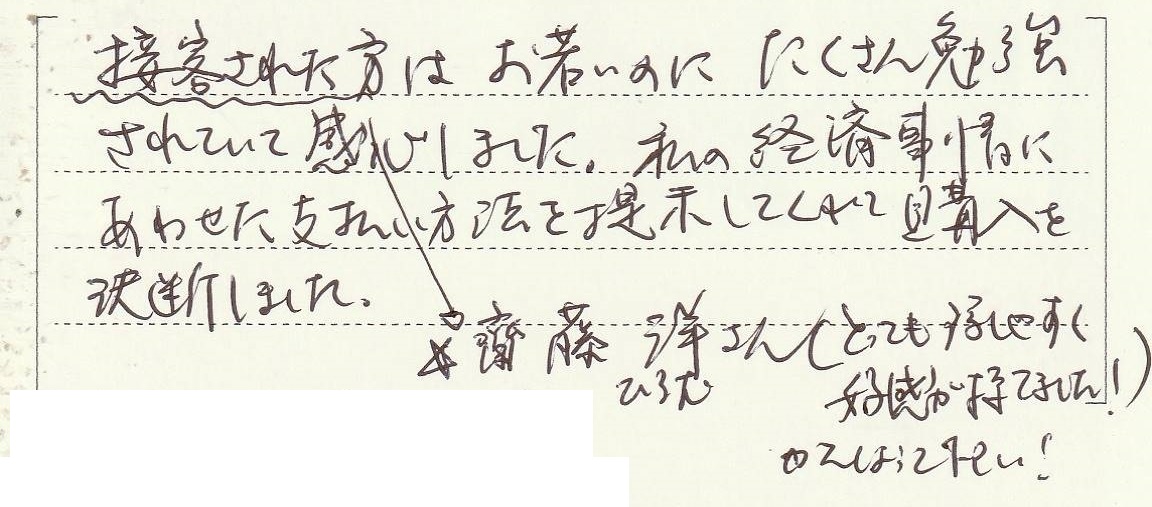 接客された方は お若いのに たくさん勉強
されていて感心しました。私の経済事情に
あわせた支払い方法を提示してくれて購入を
決断しました。
齋藤 洋さん(とっても話しやすく
ひろむ
好感が持てました!)
がんばって下さい!